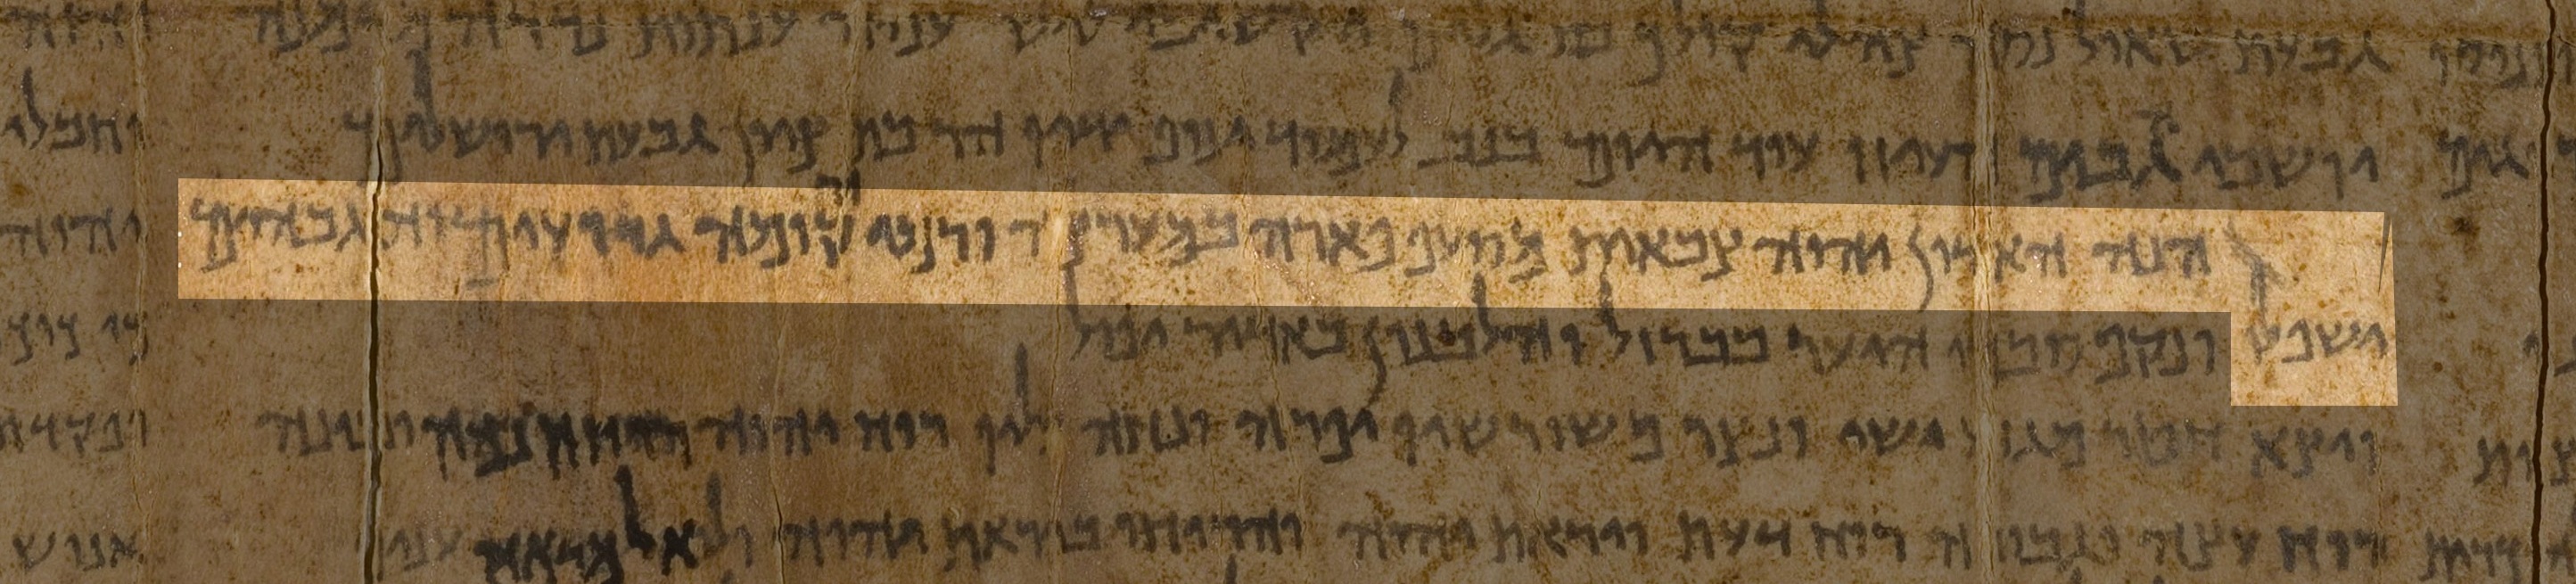 גבעת שאול נסה צהלי קולך בת גלים הקשיבי ליש עניה ענתות נדדה מדמנה
יושבי הגבים העיזו עוד היום בנוב לעמוד יניף ידו הר בת ציון גבעת ירושלים
הנה האדון יהוה צבאות מסעף פארה במערצה ורמי הקומה גדועים והגבהים
ישפלו ונקף סבכי היער בברזל והלבנון באדיר יפול
ויצא חטר מגזע ישי ונצר משורשיו יפרה ונחה עליו רוח יהוה רוח חכמה ובינה
רוח עצה וגבורה רוח דעת ויראת יהוה והריחו ביראת יהוה ולא למראה עיניו